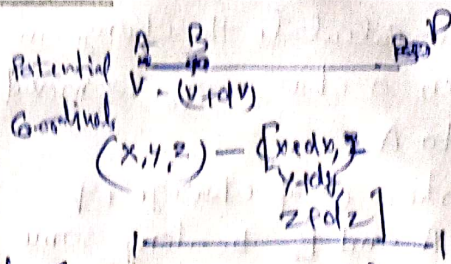 A B P
Potential
V - (V+dV)
Coordinate
(x,y,z) - [x+dx,
y+dy,
z+dz]